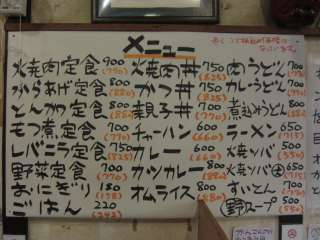 メニュー
焼肉定食 900 (990)
からあげ定食 800 (880)
とんかつ定食 800 (880)
もつ煮定食 700 (770)
レバニラ定食 750 (825)
野菜定食 700 (770)
おにぎり 180
ごはん 220 (242)
焼肉丼 750 (825)
かつ丼 750 (825)
親子丼 700 (770)
チャーハン 600 (660)
カレー 600 (660)
カツカレー 800 (880)
オムライス 800 (880)
肉うどん 700 (770)
カレーうどん 700 (770)
煮込みうどん 800 (880)
ラーメン 650 (715)
焼ソバ 500 (550)
焼ソバ
すいとん 700 (770)
野スープ 500 (550)